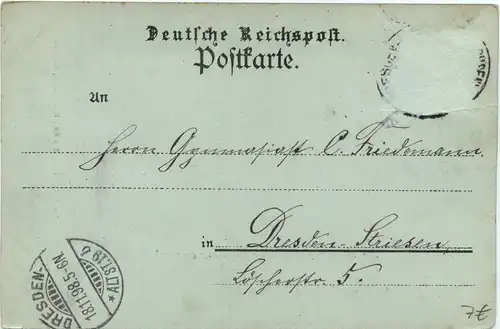 Deutsche Reichspost.
Postkarte.
An
Herrn Gymnasiast C. Friedemann
in Dresden-Striesen,
Löscherstr. 5.
DRESDEN-
ALTST. 19 b
18.11.98.5-6N
7€